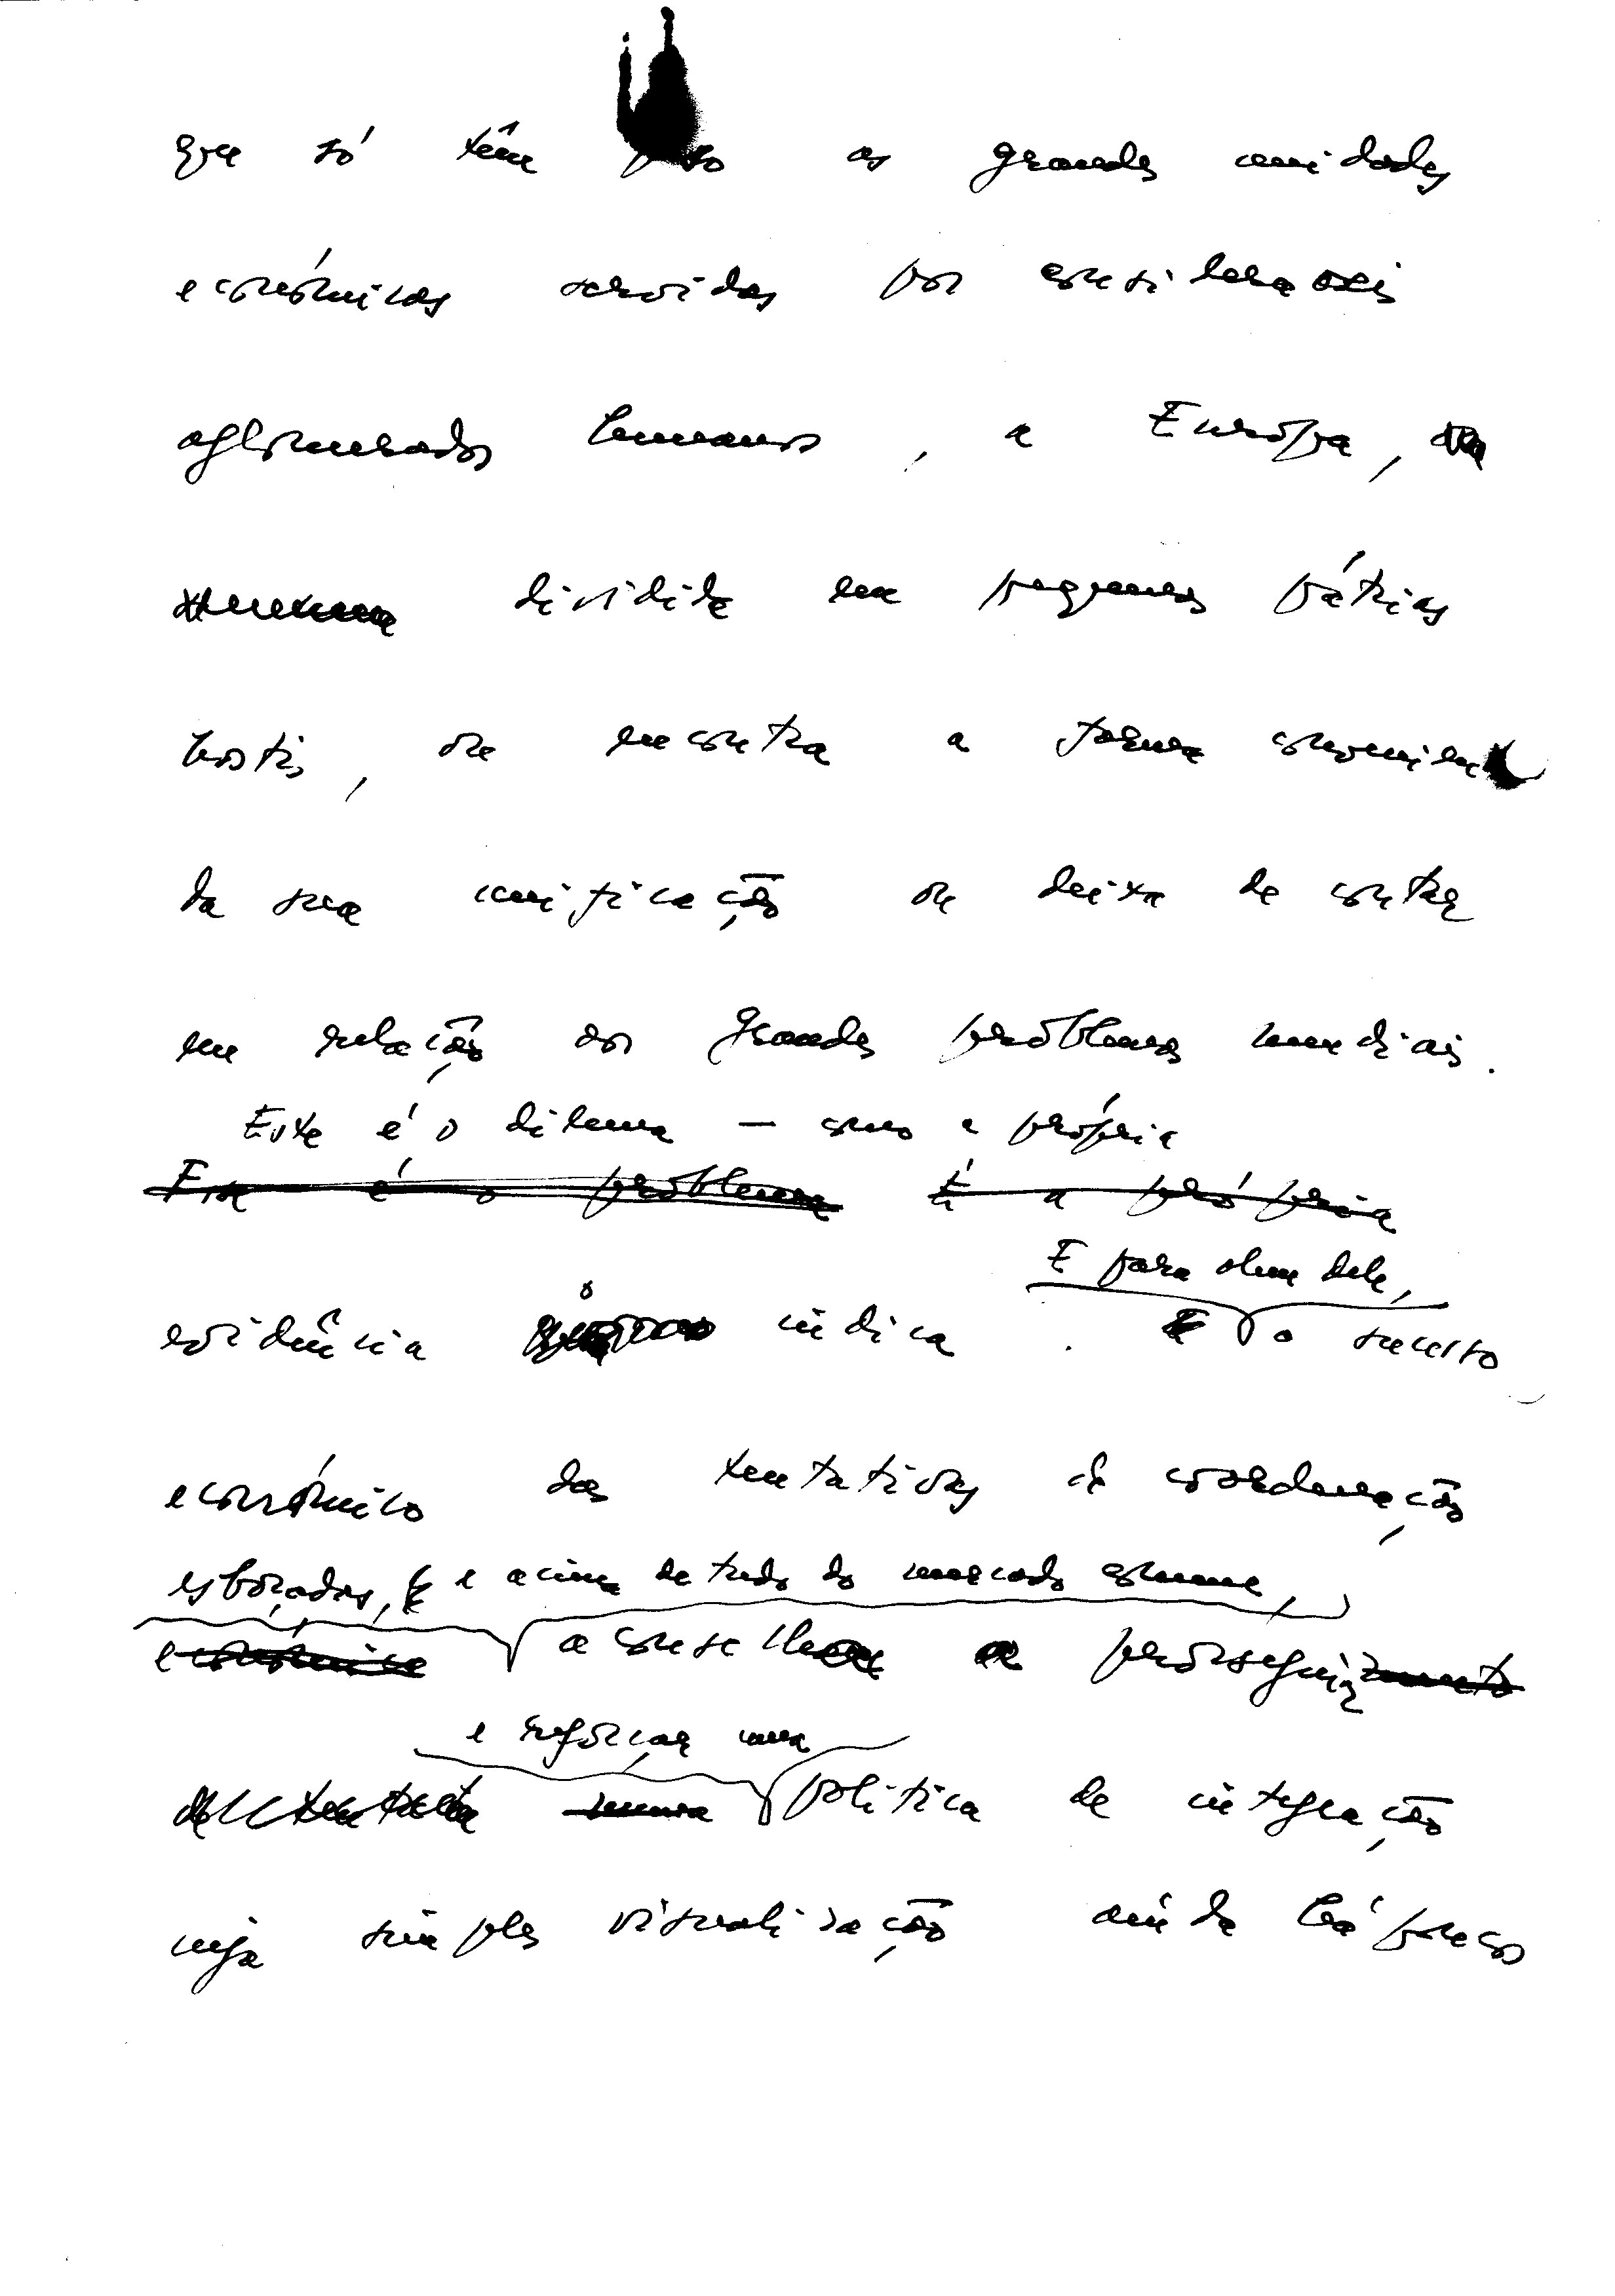 que só têm peso as grandes unidades
económicas servidas por consideraveis
aglomerados humanos, a Europa,
dividida em pequenas pátrias
hostis, ou encontra a forma conveniente
da sua unificação ou deixa de contar
em relação aos grandes problemas mundiais.
Este é o dilema — como a própria
Esse é o problema É a própria
E para alem dele,
evidência o indica. E o sucesso
económico das tentativas de coordenação
esboçadas, e acima de tudo do mercado comum,
económica aconselha a prosseguir
e reforçar uma
numa política de integração
cuja simples visualização ainda há pouco